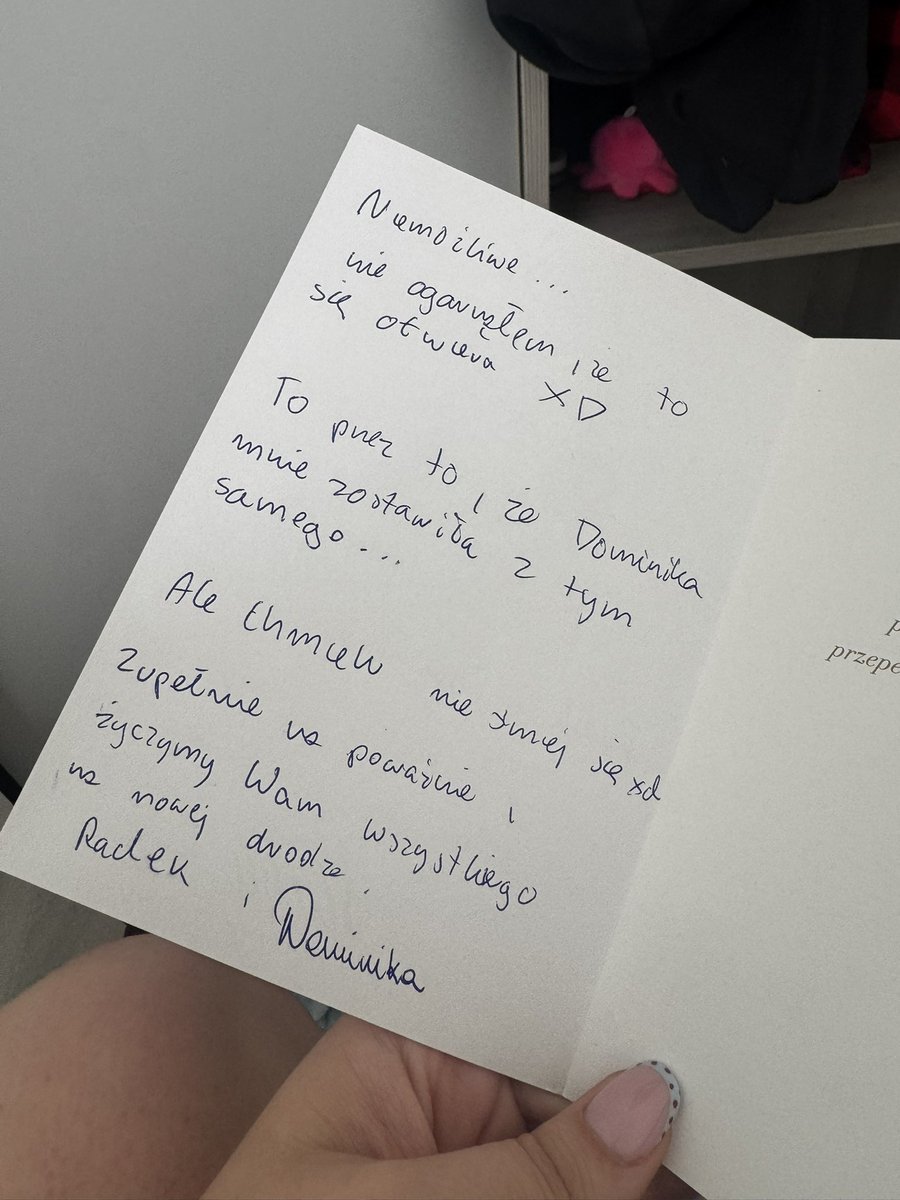 Niemożliwe...
nie ogarnąłem, że to
się otwiera XD
To przez to, że Dominika
mnie zostawiła z tym
samego...
Ale Chmielu nie śmiej się xd
Zupełnie na poważnie,
życzymy Wam wszystkiego
na nowej drodze.
Radek i Dominika
p
przepe